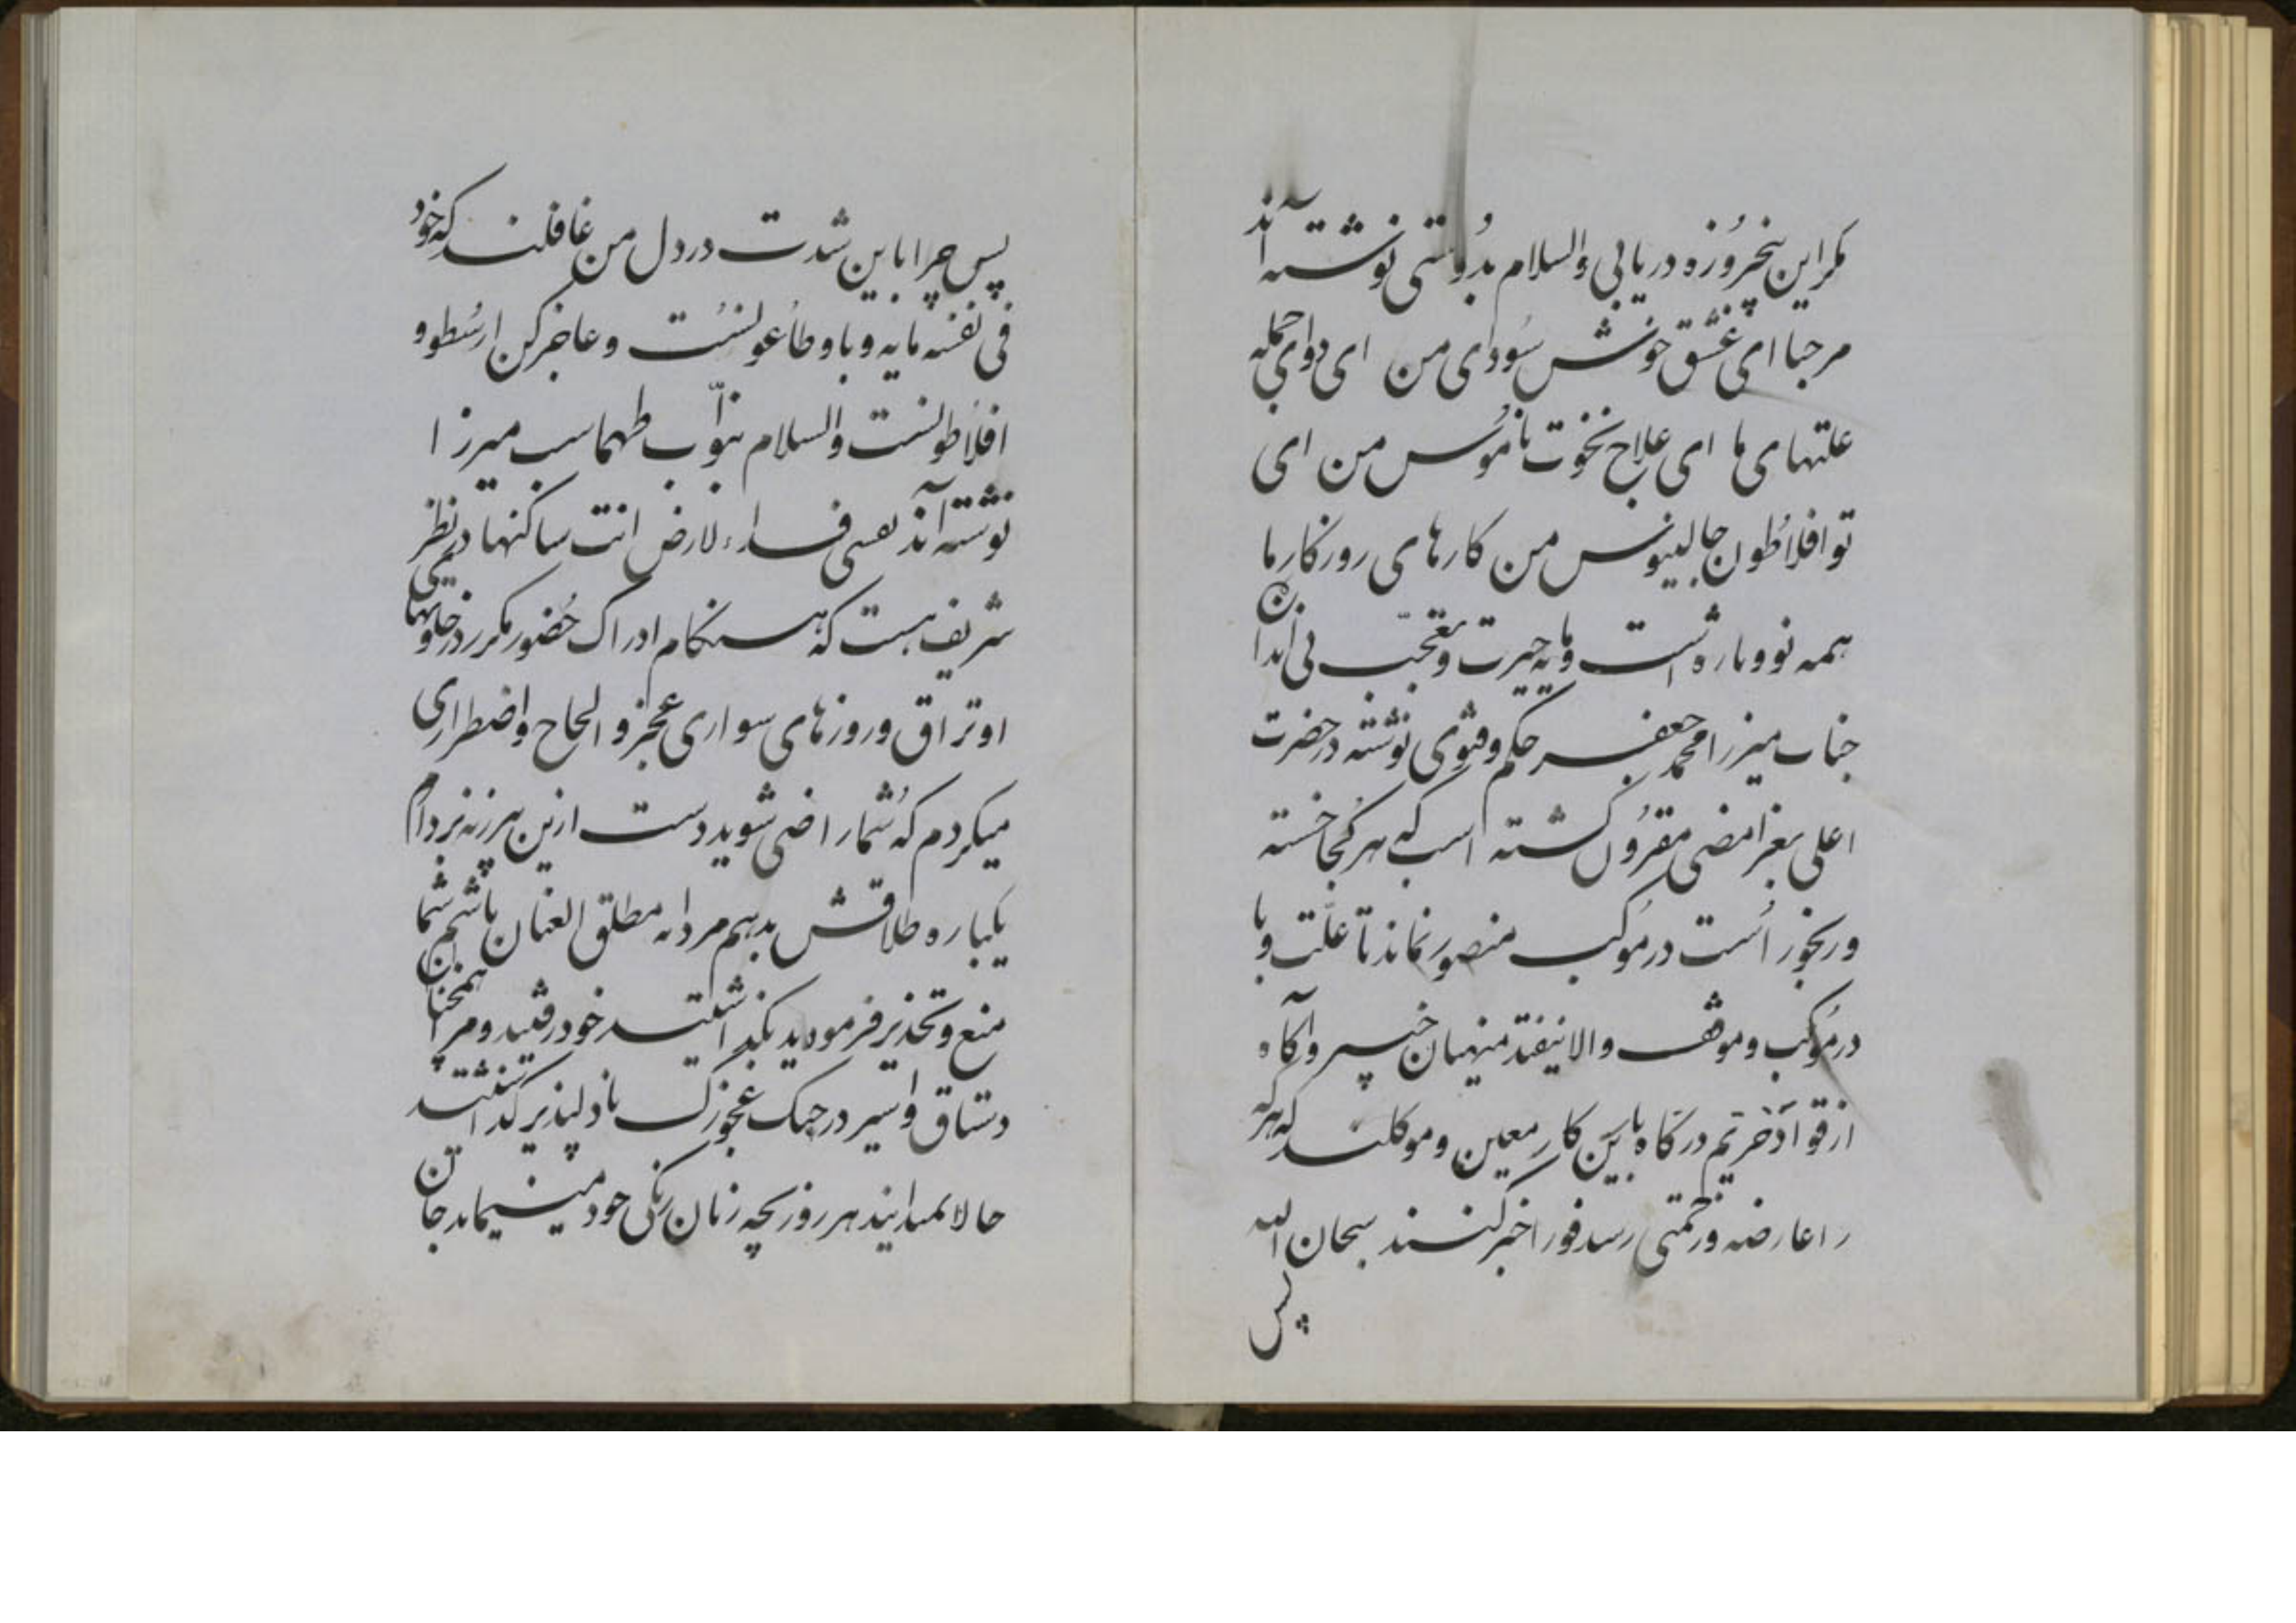 مکر این پنجروزه دریابی والسلام بدوستی نوشته‌اند
مرحبا ای عشق خوش سودای من ای دوای جمله
علتهای ما ای علاج نخوت ناموس من ای
تو افلاطون جالینوس من کارهای روزکار ما
همه نو و تازه است و مایه حیرت و تعجب بی اندازه
جناب میرزا محمد جعفر حکم و فتوی نوشته در حضرت
اعلی بعز امضی مقرون کشته است که هر کجا خسته
و رنجور است در موکب منصور نماند تا علت وبا
در موکب و موقف والا نیفتد منهیان خبیر و آکاه
از قواد خرتیم درکاه باین کار معین و موکلند که هر که
را عارضه و زحمتی رسد فورا خبر کنند سبحان الله
پس
پس چرا باین شدت درد دل من غافلند که خود
فی نفسه مایه وبا و طاعونست و عاجز کن ارسطو و
افلاطونست والسلام بنواب طهماسب میرزا
نوشته‌اند نفسی فداء لارض انت ساکنها در نظر
شریف هست که هنکام ادراک حضور مکرر در خلوتهای
اوتراق و روزهای سواری عجز و الحاح و اضطراری
میکردم که شما راضی شوید دست ازین هرزنه بردارم
یکباره طلاقش بدهم مردانه مطلق العنان باشم شما
منع و تحذیر فرمودید نکذاشتید خود رفتید و مرا همچنان
دستاق و اسیر در چنک عجوزک نادلپذیر کذاشتید
حالا نمیدانید هر روز بچه زنان رنکی خود مینماید جان من